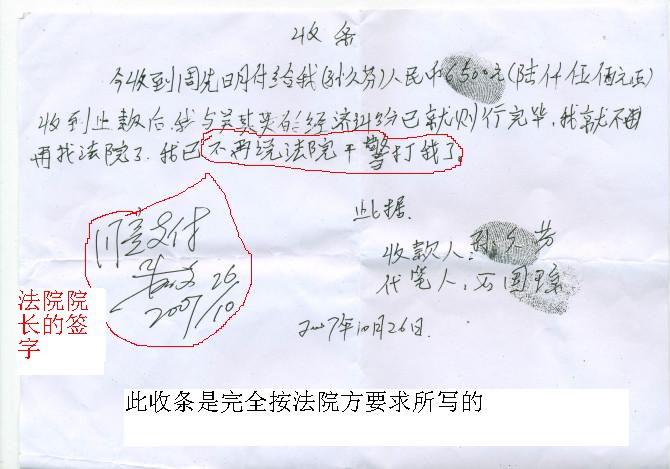 收条
今收到周先明付给我(孙久芬)人民币6500元(陆仟伍佰元正)
收到此款后,我与吴其英的经济纠纷已就此了行完毕,我就不再
再找法院了。我已不再说法院干警打我了。
此据.
收款人:孙久芬
代笔人:石国
2007年10月26日.
同意支付
26/10
2007
法院院
长的签
字
此收条是完全按法院方要求所写的